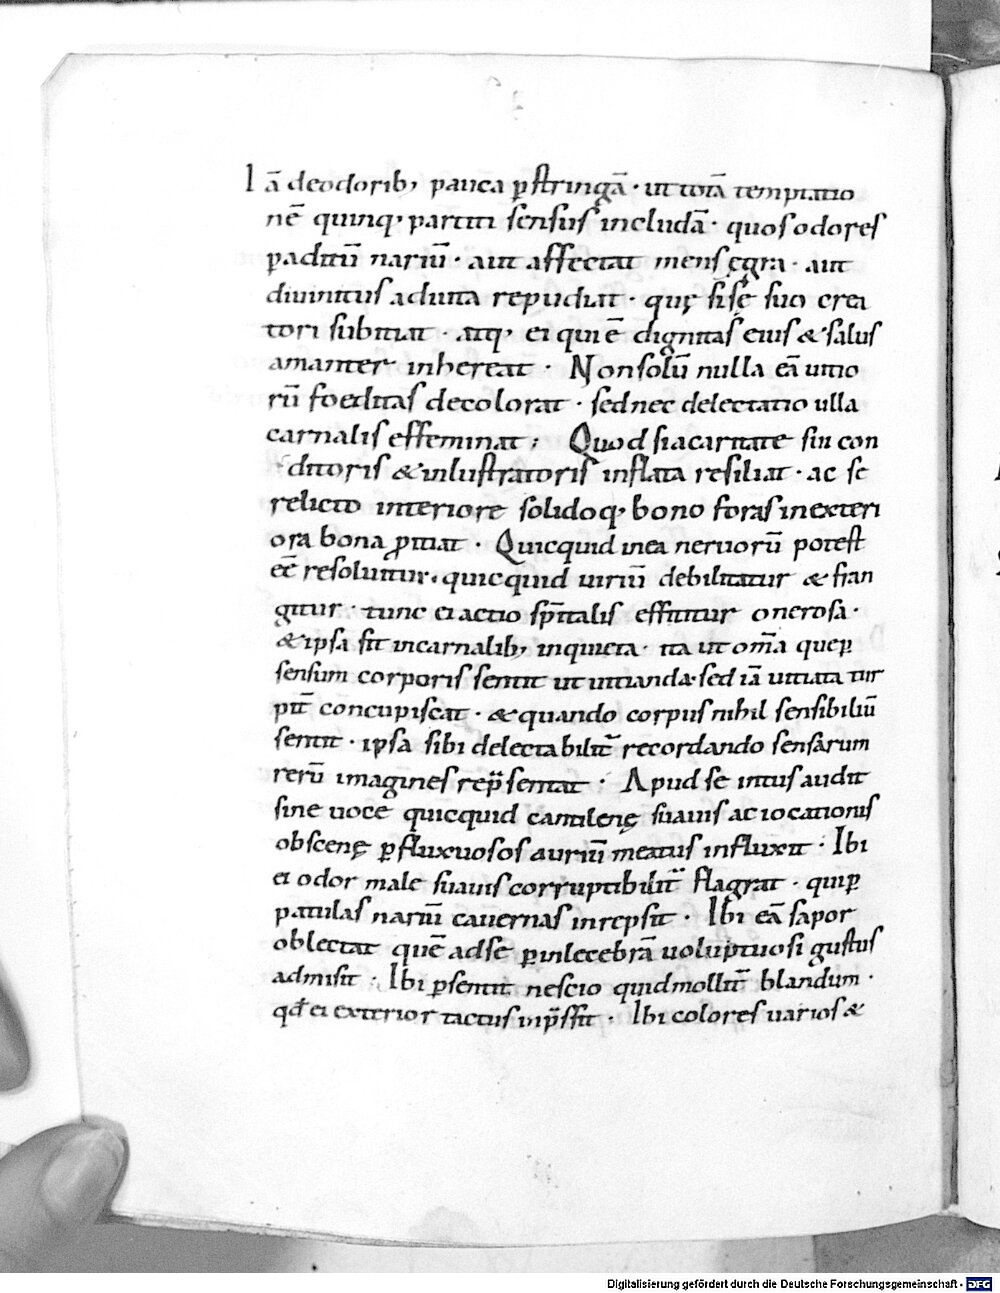 Iā deodorib; pauca ꝑstringā · ut totā temptatio
nē quinq; partiti sensus includā · quos odores
ꝑ aditū nariū · aut affectat mens ęgra · aut
divinitus adiuta repudiat · quę si sę suo crea
tori subitiat · atq; ei qui ē dignitas eius & salus
amanter inhereat · Non solū nulla eā uitio
rū foeditas decolorat · sed nec delectatio ulla
carnalis effeminat ; Quod si a caritate sui con
ditoris & inlustratoris inflata resiliat · ac se
relicto interiore solidoq; bono foras in exteri
ora bona ꝓitiat · Quicquid in ea neruorū potest
eē̄ resoluitur · quicquid uiriū debilitatur & fran
gitur · tunc ei actio sp̄italis efficitur onerosa ·
& ipsa fit in carnalib; inquieta · ita ut om̄a quę ꝑ
sensum corporis sentit ut uitianda · sed iā uitiata tur
pit̄ concupiscat · & quando corpus nihil sensibiliū
sentit · ipsa sibi delectabilit̄ recordando sensarum
rerū imagines rep̄sentat ; Apud se intus audit
sine uoce quicquid cantilenę suauis ac iocationis
obscenę ꝑ fluxuosos auriū meatus influxit · Ibi
ei odor male suauis corruptibilit̄ flagrat · qui ꝑ
patulas nariū cauernas inrepsit · Ibi eā sapor
oblectat quē ad se ꝑ inlecebrā uoluptuosi gustus
admisit · Ibi ꝑsentit nescio quid mollit̄ blandum ·
qđ ei exterior tactus inp̄ssit · Ibi colores uarios &
Digitalisierung gefördert durch die Deutsche Forschungsgemeinschaft - DFG